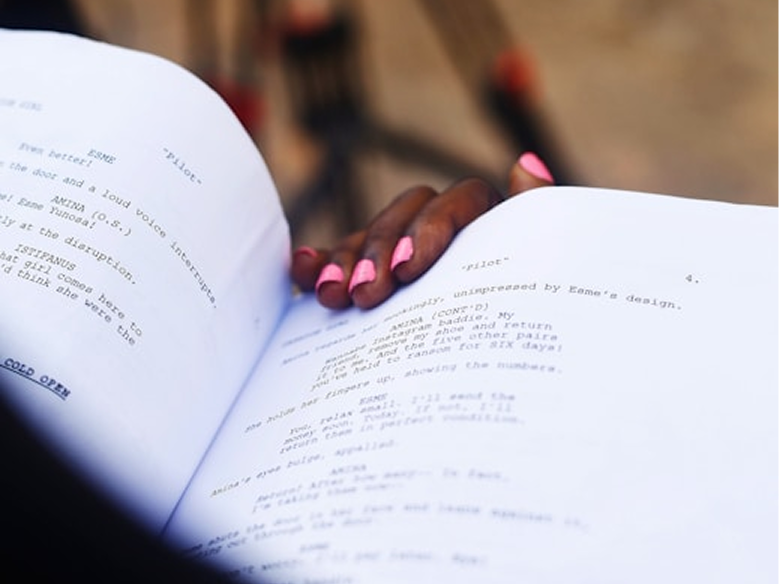 "Pilot"
ESME
Even better!
the door and a loud voice interrupts.
AMINA (O.S.)
me! Esme Yunosa!
at the disruption.
ISTIFANUS
that girl comes here to
think she were the
COLD OPEN
"Pilot" 4.
Amina regards her mockingly, unimpressed by Esme's design.
AMINA (CONT'D)
Wannabe Instagram baddie. My
friend, remove my shoe and return
it to me. And the five other pairs
you've held to ransom for SIX days!
She holds her fingers up, showing the numbers.
ESME
You, relax small. I'll send the
money soon. Today. If not, I'll
return them in perfect condition.
Amina's eyes bulge, appalled.
AMINA
Return? After how many-- In fact,
I'm taking them now--
shuts the door in her face and leans against it,
out through the door.
ESME
I'll pay later.